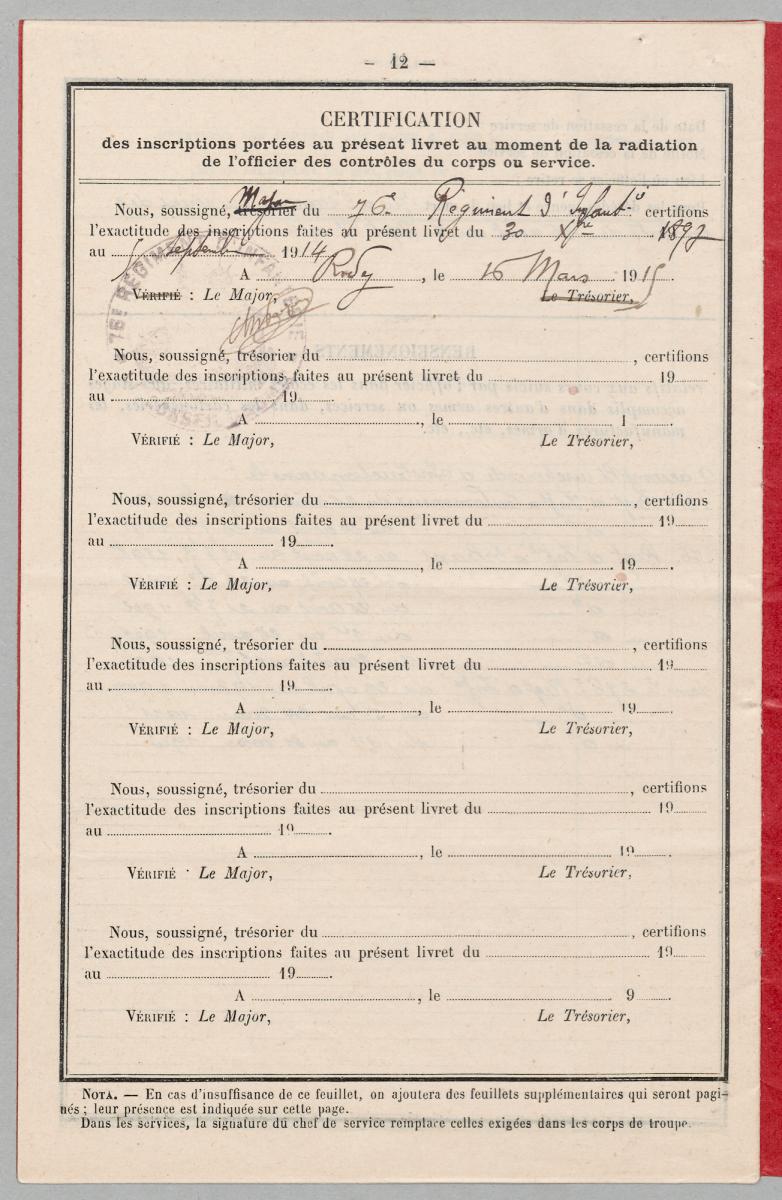 — 12 —
CERTIFICATION
des inscriptions portées au présent livret au moment de la radiation
de l'officier des contrôles du corps ou service.
Major
Nous, soussigné, trésorier du 76e Régiment d'Infantie certifions
l'exactitude des inscriptions faites au présent livret du 30 Xbre 1897
au septembre 1914
A Rodez, le 16 Mars 1915.
VÉRIFIÉ : Le Major, Le Trésorier,
76E REGIMENT D'INFANTERIE
Nous, soussigné, trésorier du , certifions
l'exactitude des inscriptions faites au présent livret du 19
au 19 .
A , le 1 .
VÉRIFIÉ : Le Major, Le Trésorier,
Nous, soussigné, trésorier du , certifions
l'exactitude des inscriptions faites au présent livret du 19
au 19 .
A , le 19 .
VÉRIFIÉ : Le Major, Le Trésorier,
Nous, soussigné, trésorier du , certifions
l'exactitude des inscriptions faites au présent livret du 19
au 19 .
A , le 19 .
VÉRIFIÉ : Le Major, Le Trésorier,
Nous, soussigné, trésorier du , certifions
l'exactitude des inscriptions faites au présent livret du 19
au 19 .
A , le 19 .
VÉRIFIÉ : Le Major, Le Trésorier,
Nous, soussigné, trésorier du , certifions
l'exactitude des inscriptions faites au présent livret du 19
au 19 .
A , le 9 .
VÉRIFIÉ : Le Major, Le Trésorier,
NOTA. — En cas d'insuffisance de ce feuillet, on ajoutera des feuillets supplémentaires qui seront pagi-
nés ; leur présence est indiquée sur cette page.
Dans les services, la signature du chef de service remplace celles exigées dans les corps de troupe.